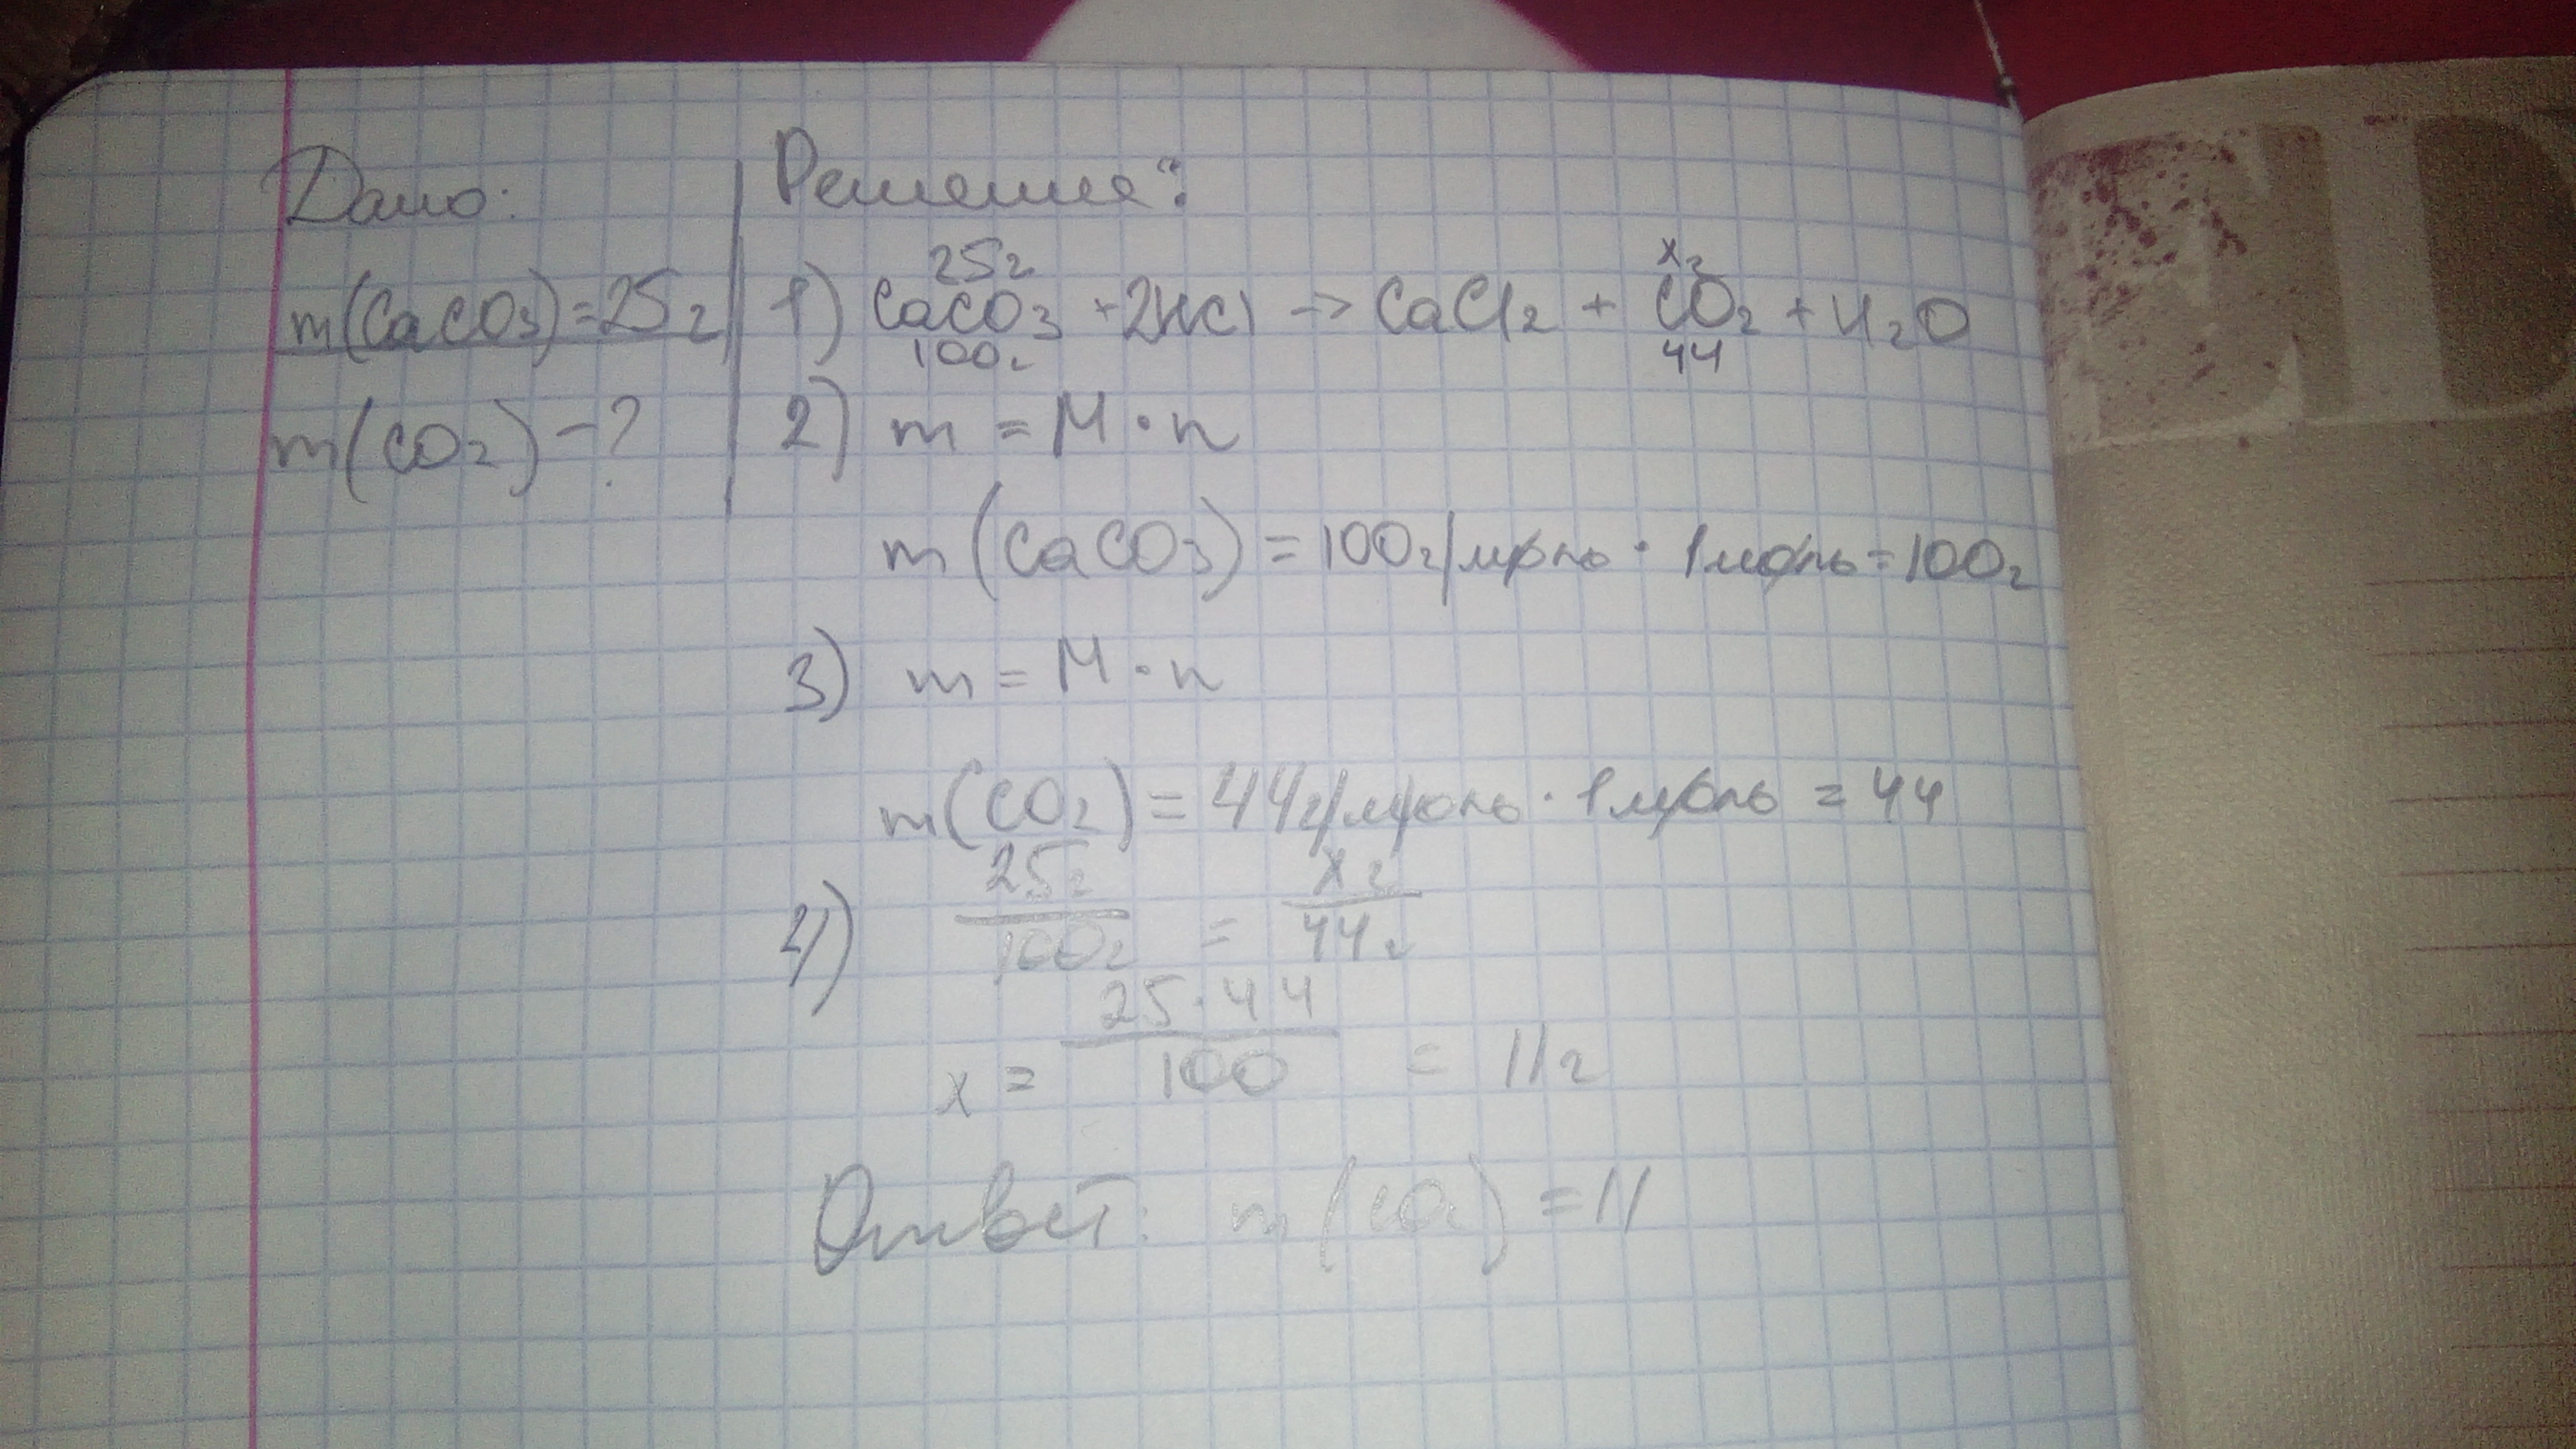 Дано:
m(CaCO3)=25г
m(CO2)-?
Решение:
25г хг
1) CaCO3 +2HCl → CaCl2 + CO2 + H2O
100г 44
2) m = M · n
m(CaCO3) = 100г/моль · 1моль = 100г
3) m = M · n
m(CO2) = 44г/моль · 1моль = 44
4) 25г/100г = хг/44г
x = 25·44/100 = 11г
Ответ: m(CO2) = 11